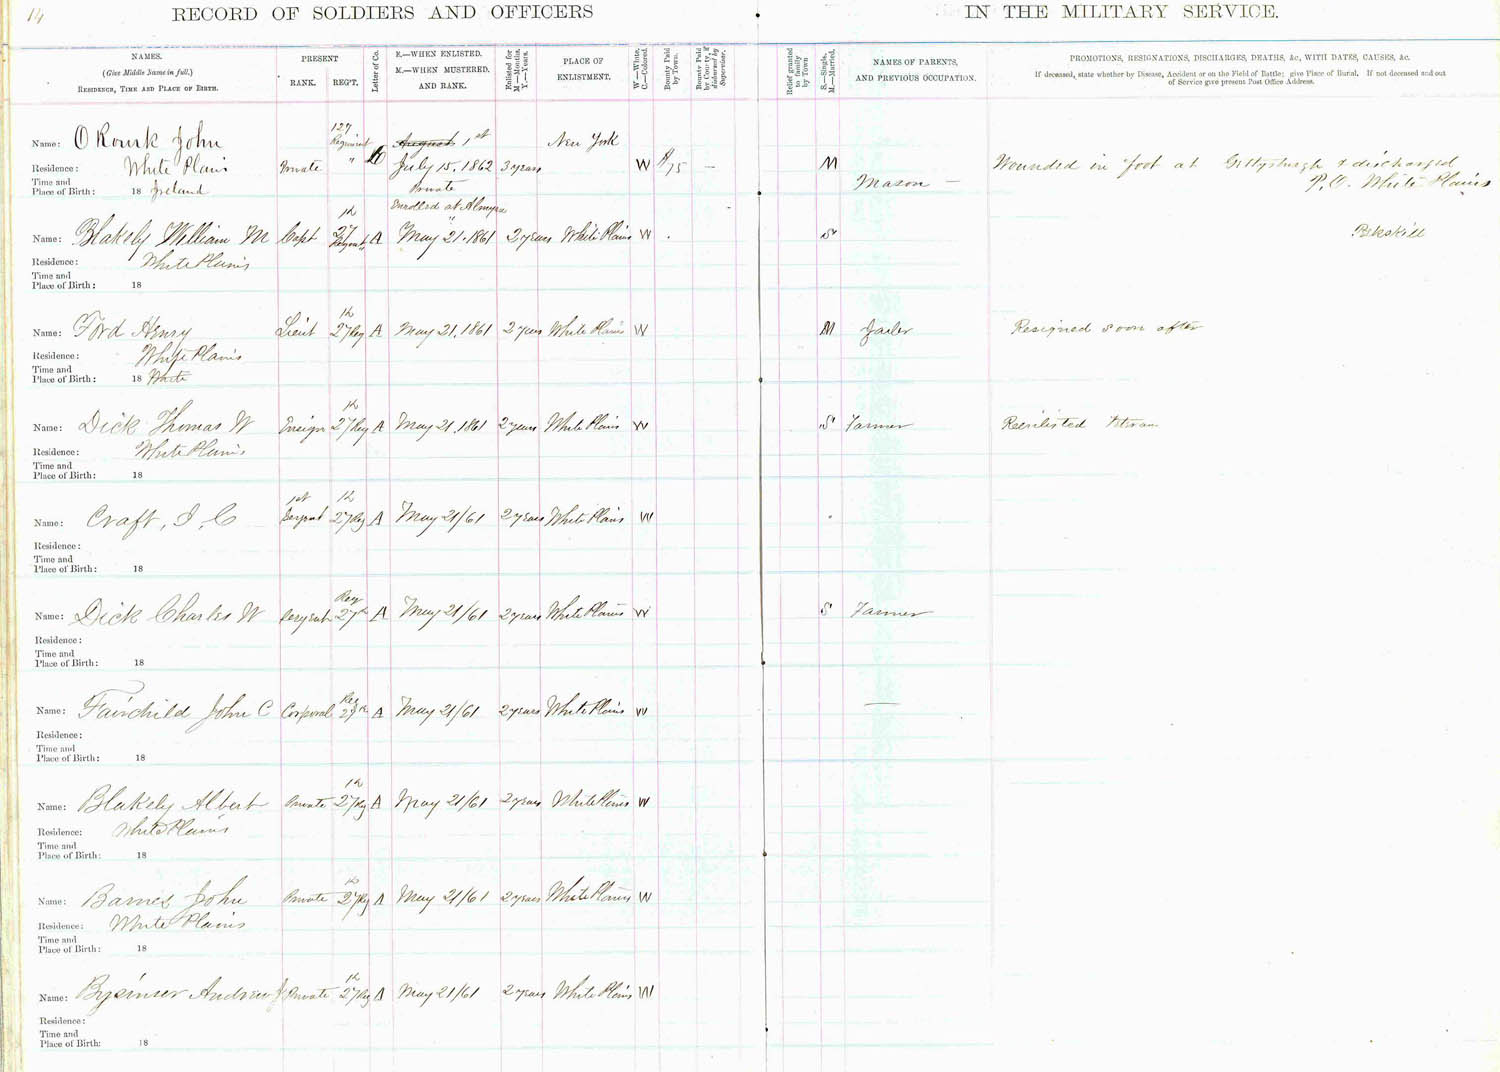 14
RECORD OF SOLDIERS AND OFFICERS IN THE MILITARY SERVICE.
NAMES.
(Give Middle Name in full.)
RESIDENCE, TIME AND PLACE OF BIRTH.
PRESENT
RANK. REG'T.
Letter of Co.
E.—WHEN ENLISTED.
M.—WHEN MUSTERED.
AND RANK.
Enlisted for
M.—Months.
Y.—Years.
PLACE OF
ENLISTMENT.
W.—White.
C.—Colored.
Bounty Paid
by Town.
Bounty Paid
by County if
disbursed by
Supervisor.
Relief granted
to family
by Town
S.—Single.
M.—Married.
NAMES OF PARENTS,
AND PREVIOUS OCCUPATION.
PROMOTIONS, RESIGNATIONS, DISCHARGES, DEATHS, &c, WITH DATES, CAUSES, &c.
If deceased, state whether by Disease, Accident or on the Field of Battle; give Place of Burial. If not deceased and out
of Service give present Post Office Address.
127
Regiment August 1st New York
Name: O Rourk John
Residence: White Plains Private " July 15. 1862 3 years W 75 — M Wounded in foot at Gettysburgh & discharged
Time and Private Mason — P.O. White Plains
Place of Birth: 18 Ireland
Enrolled at Almyra
Name: Blakely William M Capt 27 Regment A May 21. 1861 2 years White Plains W S Pekskill
Residence: White Plains
Time and
Place of Birth: 18
th
Name: Ford Henry Lieut 27 Reg A May 21. 1861 2 years White Plains W M Jailer Resigned soon after
Residence: White Plains
Time and
Place of Birth: 18 White
th
Name: Dick Thomas W Ensign 27 Reg A May 21. 1861 2 years White Plains W S Farmer Reenlisted Veteran
Residence: White Plains
Time and
Place of Birth: 18
1st th
Name: Craft, I, C Sergent 27 Reg A May 21/61 2 years White Plains W
Residence:
Time and
Place of Birth: 18
Reg
Name: Dick Charles W Sergent 27th A May 21/61 2 years White Plains W S Farmer
Residence:
Time and
Place of Birth: 18
Reg
Name: Fairchild John C Corporal 27th A May 21/61 2 years White Plains W —
Residence:
Time and
Place of Birth: 18
th
Name: Blakely Albert Private 27 Reg A May 21/61 2 years White Plains W
Residence: White Plains
Time and
Place of Birth: 18
th
Name: Barnes John Private 27 Reg A May 21/61 2 years White Plains W
Residence: White Plains
Time and
Place of Birth: 18
th
Name: Andrew J Private 27 Reg A May 21/61 2 years White Plains W
Residence:
Time and
Place of Birth: 18